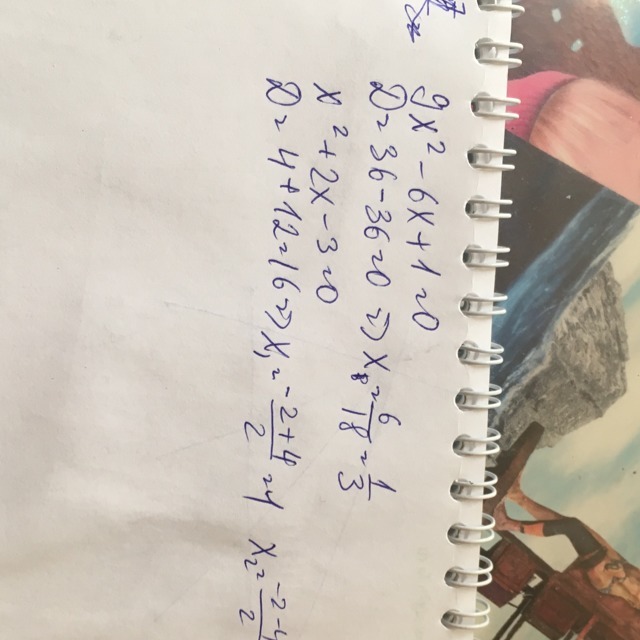 9x² - 6x + 1 = 0
D = 36 - 36 = 0 => x = 6/18 = 1/3
x² + 2x - 3 = 0
D = 4 + 12 = 16 => x₁ = (-2+4)/2 = 1 x₂ = (-2-4)/2